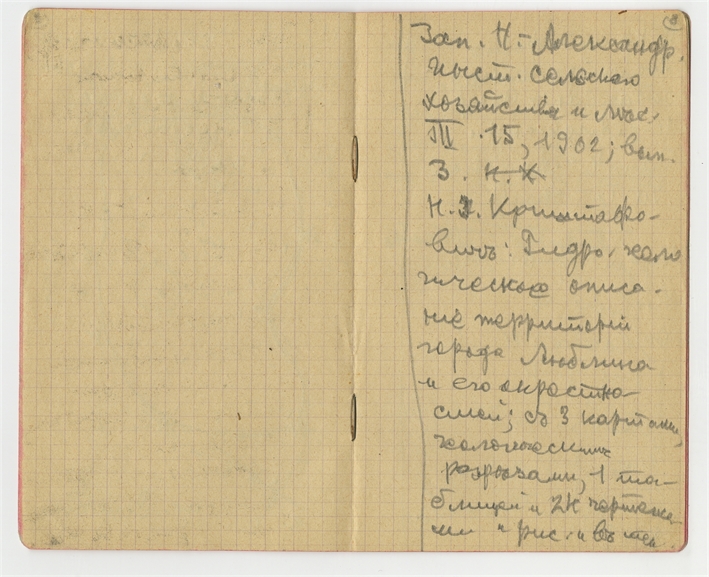 Зап. Н.-Александр.
Инст. сельскаго
хозяйства и лѣс.
III. 15, 1902; вып.
3. Н. Х
Н. І. Криштафо-
вичъ: Гидро-геоло
гическое описа-
ніе территоріи
города Люблина
и его окрестно-
стей; съ 3 картами,
геологическими
разрѣзами, 1 та-
блицей и чертежа-
ми и рис. въ тек.